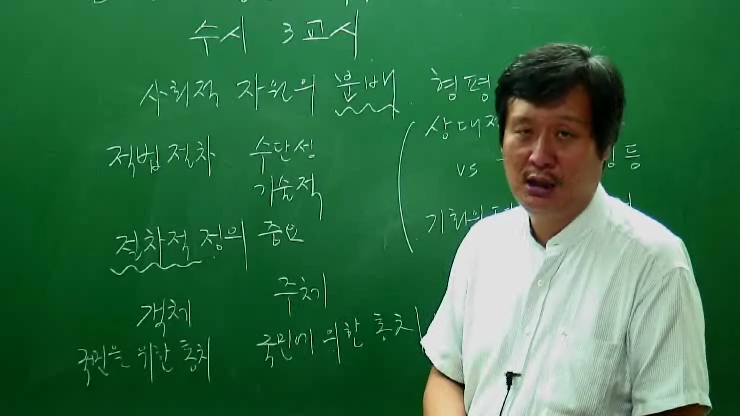 수시 3교시
사회적 자원의 분배 형평
적법절차 수단성 상대적
기술적 vs 등
절차적 정의 중요 기회의
객체 주체
국민을 위한 통치 국민에 위한 통치